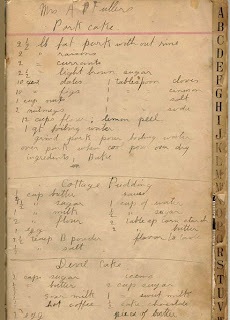 Mrs A P Fullers
Pork cake
2 ½ lb fat pork with out rine
2 " raisins
2 " currants
2 ½ " light brown sugar
10 dates 1 tablespoon cloves
10 " figs 1 " cinnamon
1 cup nuts 1 " salt
2 nutmegs 1 " soda
12 cups flour, lemon peel
1 qt boiling water
grind pork pour boiling water
over pork when cool pour over dry
ingredients, Bake
Cottage Pudding
cup butter sauce
" sugar 1 cup of water
" milk ½ " sugar
2 " flour 1 corn starch
1 egg " butter
2 B powder flavor
" salt
Devil Cake
1 cup sugar
" butter cup sugar
" sour milk " sweet milk
" hot coffee chocolate
egg piece of butter
A
B
C
D
E
F
G
H
I
J
K
L
M
R
S
T
U
V
W